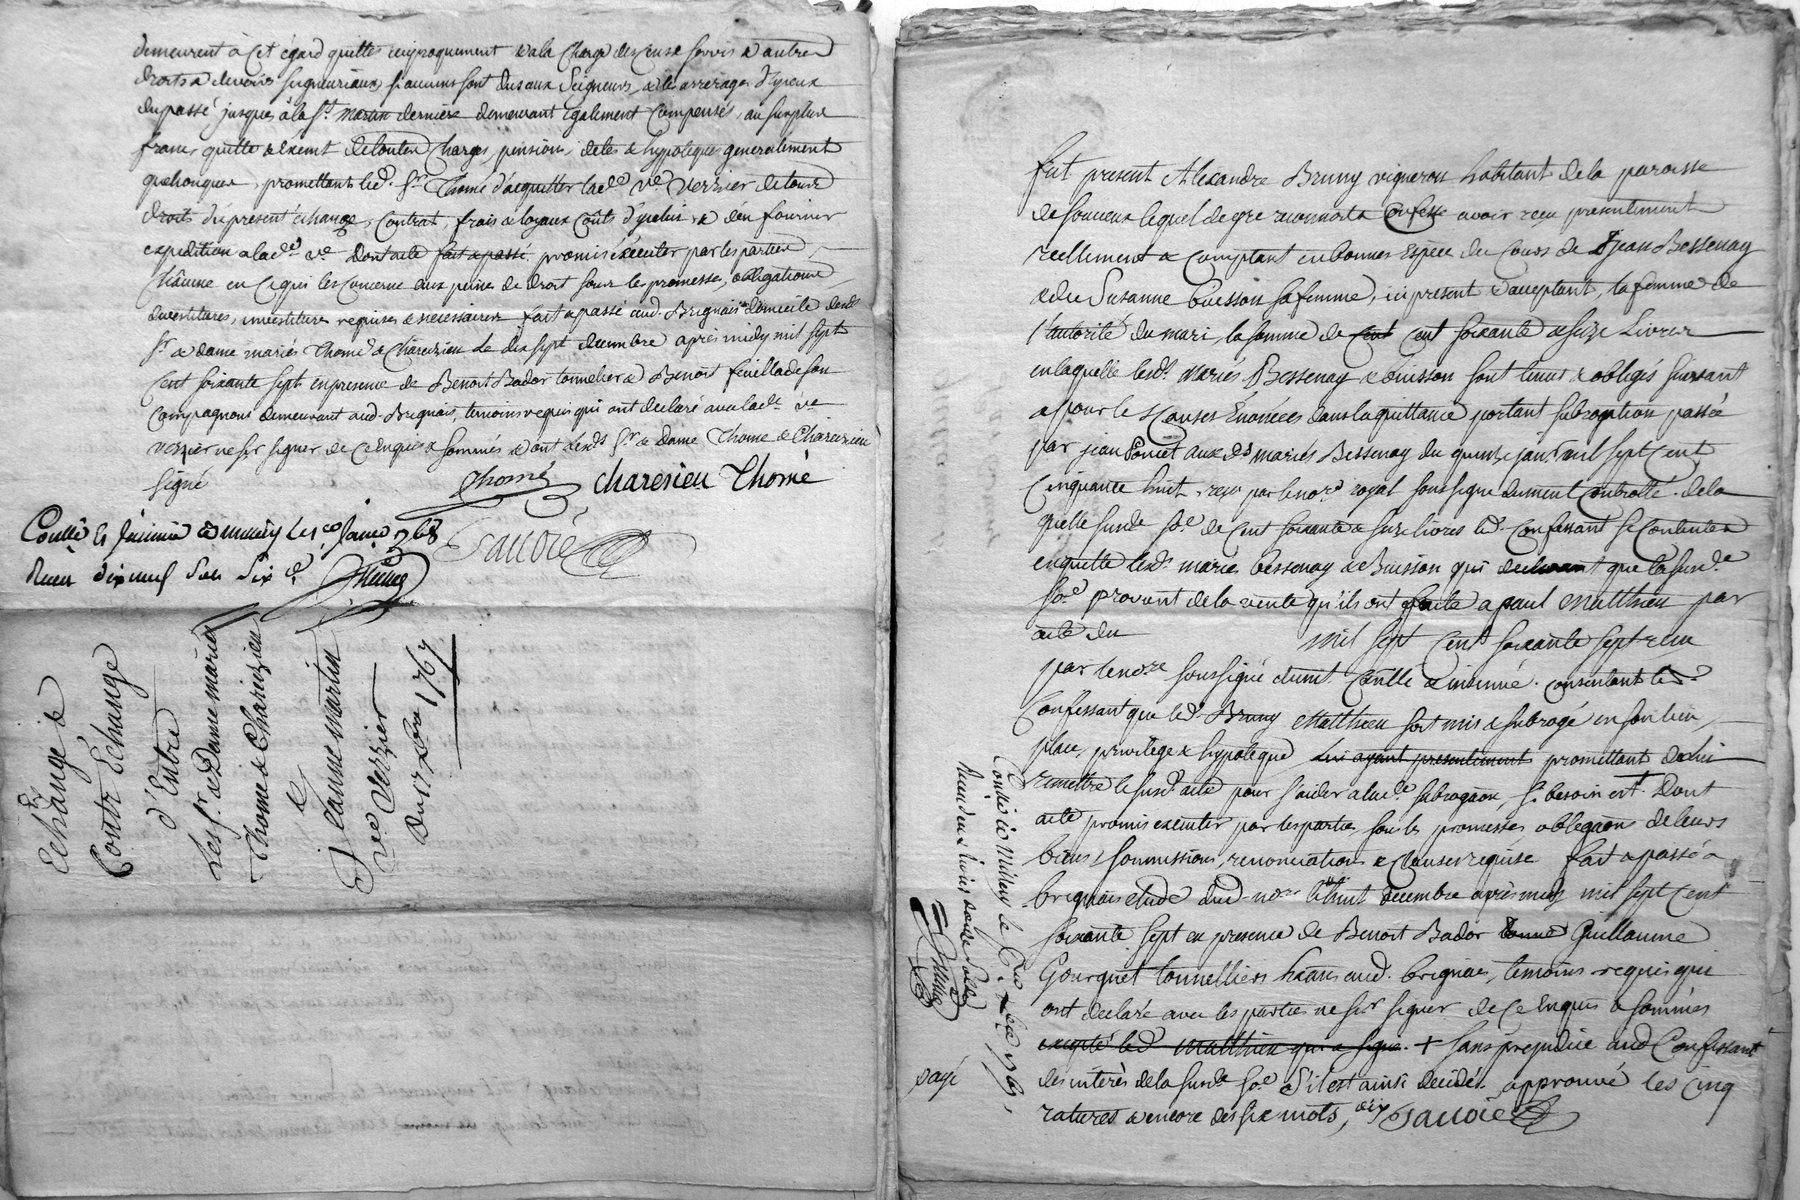 demeurent à cet égard quittes reciproquement & a la charge des cens & servis & autres
droits & devoirs seigneuriaux si aucuns sont dus aux Seigneurs, & les arrerages d'yceux
du passé jusques à la St. Martin derniere demeurant également compensés, au surplus
franc, quitte & exemt de toutes charges, pensions, dettes & hypoteques generalement
quelconques, promettants led. Sr. Thomé d'acquitter lade. ve. Verzier de tous
droits du present échange, contrat, frais & loyaux coûts d'yceluy & d'en fournir
expédition a lade. ve. Dont acte fait & passé, promis éxécuter par les parties,
châcune en ce qui les concerne aux peines de droit sous les promesses, obligations,
devestitures, investitures requises & necessaires fait & passé aud. Brignais domicile desds.
Sr. & dame mariés Thomé & Charezieu le dix sept decembre après midy mil sept
cent soixante sept en presence de Benoit Bador tonnelier & Benoit feuillade son
compagnons demeurant aud. Brignais, temoins requis qui ont declaré avec lade. ve.
verzier ne sçr. signer de ce enquis & sommés & ont lesds. Sr. & Dame Thomé & Charezieu
signé
Thomé charesieu Thomé
Savoie
Contlé & insinué a le janier 1768
Reçu dixneuf sols six d.
Echange &
Contr'Echange
d'Entre
Les Sr. & Damme mariés
Thomé & Charezieu
&
Jeanne martin
vve Verzier
Du 17 xbre 1767
fut present Alexandre Bruny vigneron habitant de la paroisse
de Soucieux lequel de gre reconnoit & confesse avoir reçu presentement
reellement & comptant en bonnes espece du cours de Jean Bessenay
& de Suzanne buisson sa femme, ici present & acceptant, la femme de
l'autorité du mari la somme de cent cent soixante & seize Livres
en laquelle lesds. mariés Bessenay & buisson sont tenus & obligés suivant
& pour les causes énoncées dans la quittance portant subrogation passée
par jean Poncet aux ds. mariés Bessenay du quinze janr. mil sept cent
cinquante huit, reçu par le nore. royal soussigné dument controllé. de la
quelle susde. soe. de cent soixante & seize livres led. confessant se contente &
en quitte lesds. mariés bessenay & Buisson qui declarent que la susde.
soe. provient de la vente qu'ils ont faite a paul Matthieu par
acte du mil sept cent soixante sept reçu
par le nore. soussigné dumt. contllé & insinué. consentant led.
confessant que led. Bruny Matthieu soit mis & subrogé en son lieu,
place, privilege & hypoteque lui ayant presentement promettant de lui
remettre le susd. acte pour s'aider a lade. subrogaõn, si besoin est. Dont
acte promis executer par les parties sous les promesses obligaõns de leurs
biens, soumissions, renonciations & clauses requise fait & passé a
brignais etude dud. nore. le huit decembre après midy mil sept cent
soixante sept en presence de Benoit Bador tonne Guillaume
Gourguet tonnelliers hãans aud. brignais, temoins requis qui
ont declaré avec les parties ne sçr. signer de ce enquis & sommés
excepté led. Matthieu qui a signé. + sans prejudice aud. confessant
des interês de la susde. soe. s'il est ainsi decidé. approuvé les cinq
ratures & encore des six mots, dix Savoie
Contlé a Millery le xbre 1767,
Reçu deux livres douze sols
payé